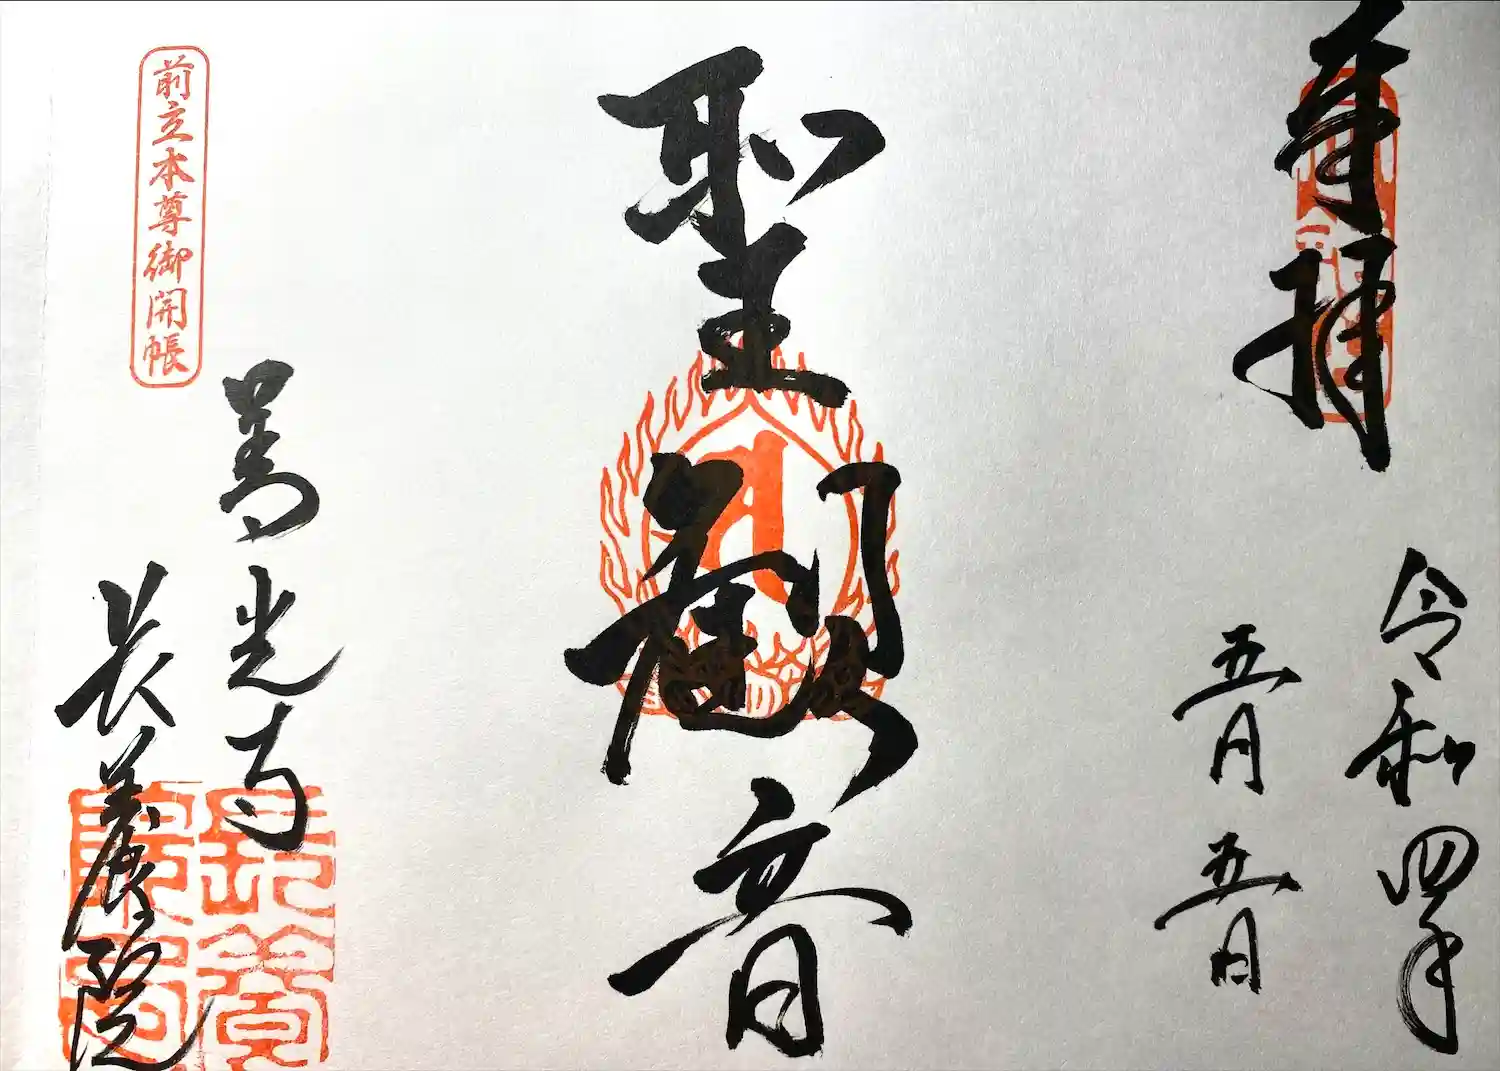 奉拝
令和四年
五月五日
聖観音
善光寺
長養院
前立本尊御開帳